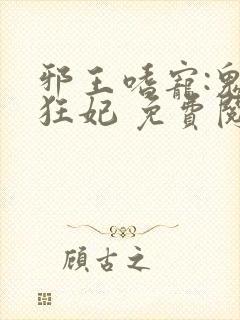 邪王嗜寵:鬼
狂妃 免費閱
顧古之